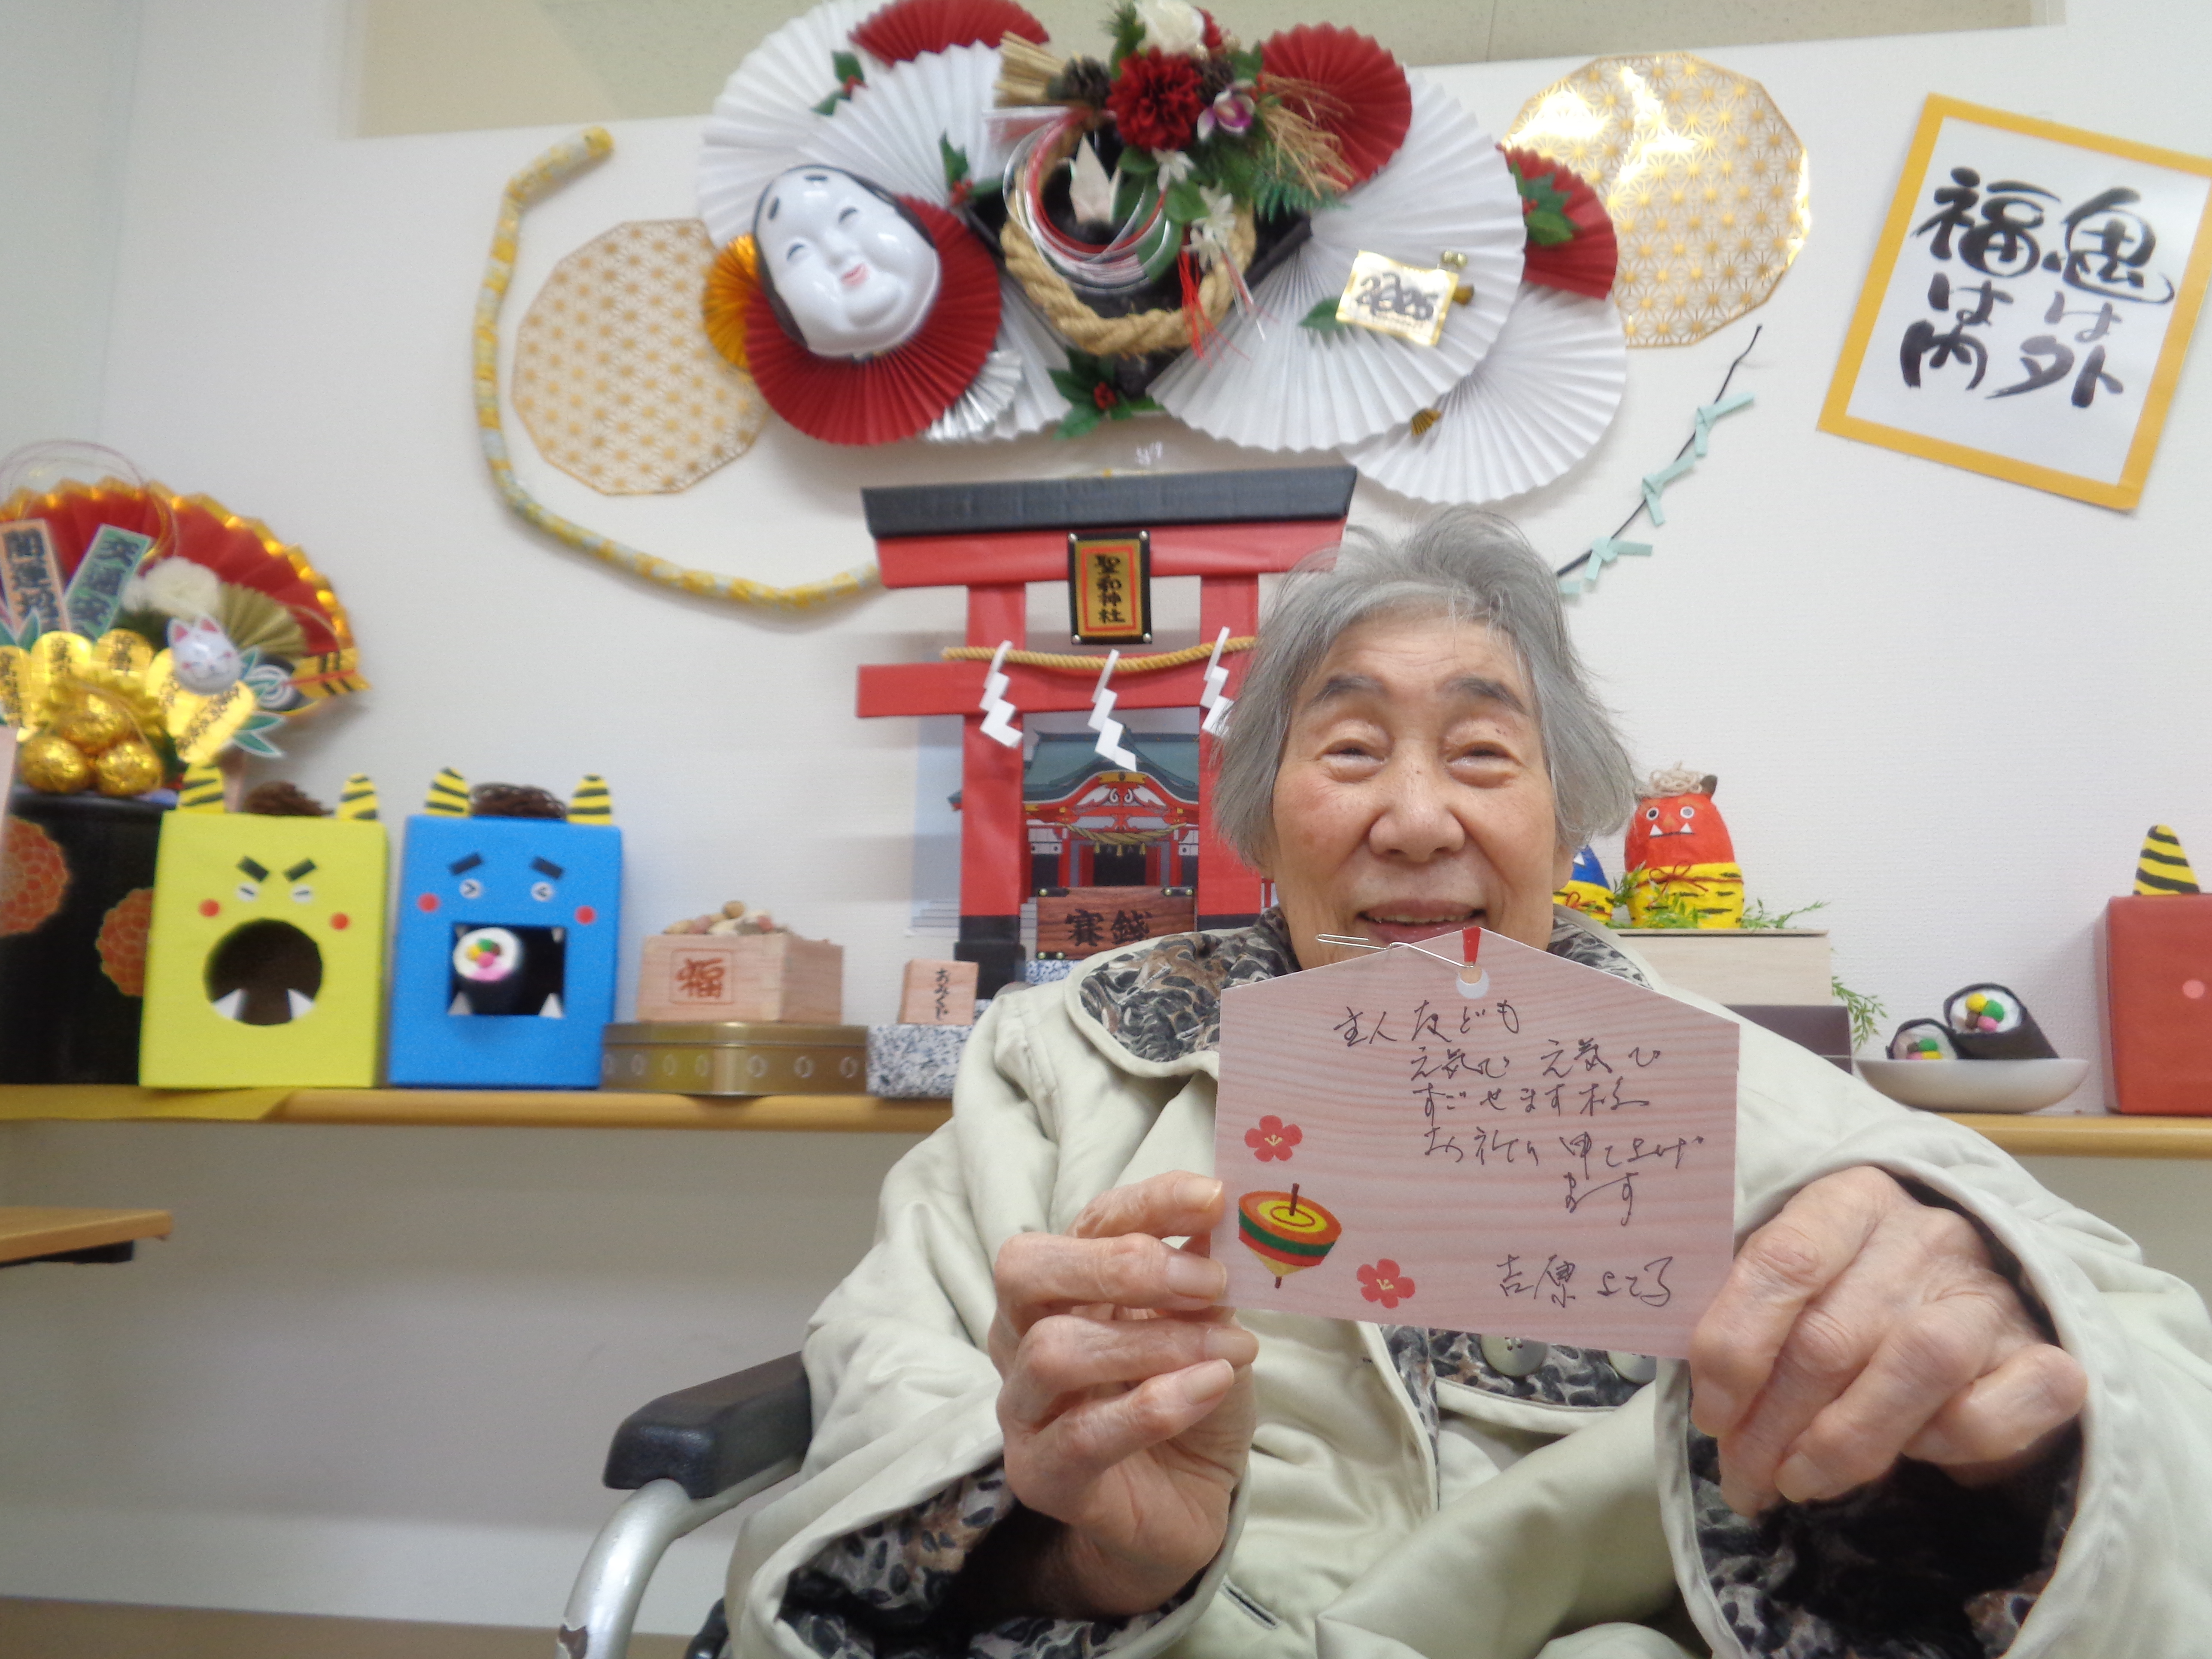 鬼は外
福は内
2025
開運招福
交通安全
聖和神社
賽銭
福
おみくじ
主人友ども
元気で 元気で
すごせます様
お祈り申し上げ
ます
吉原